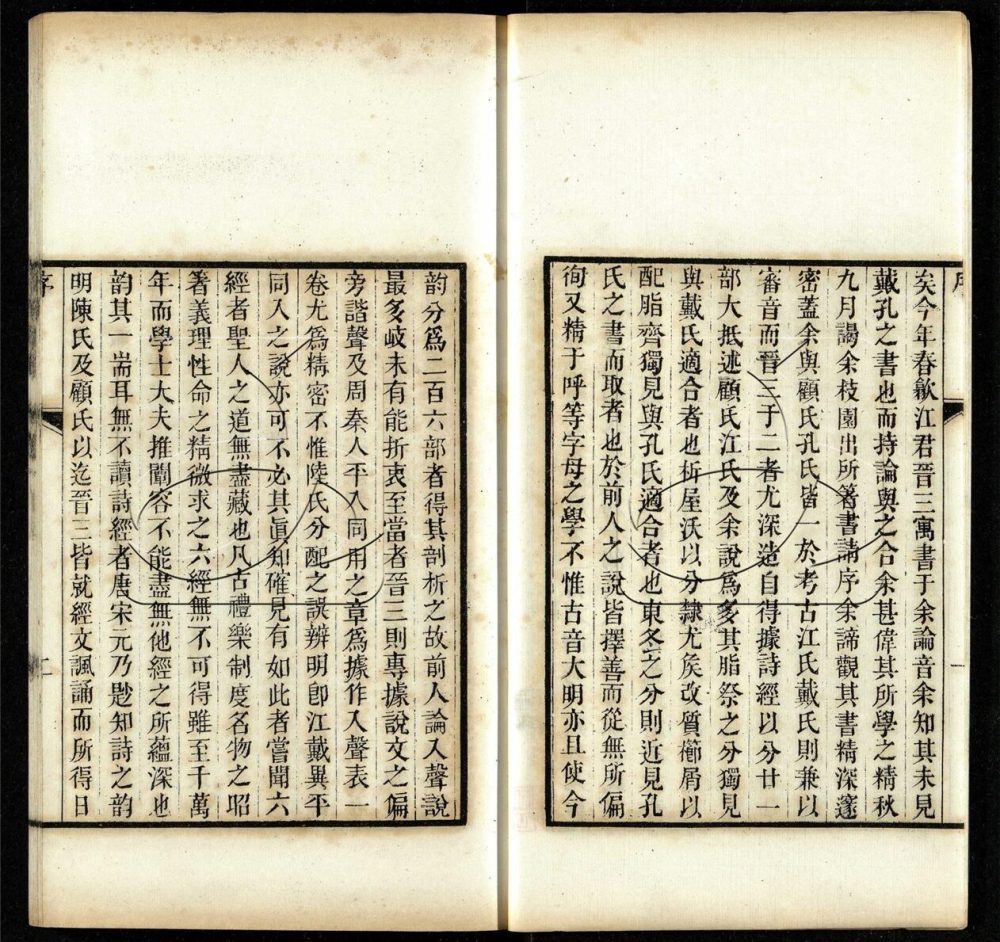 序
一
矣今年春歙江君晉三寓書于余論音余知其未見
戴孔之書也而持論與之合余甚偉其所學之精秋
九月謁余枝園出所箸書請序余諦觀其書精深邃
密蓋余與顧氏孔氏皆一於考古江氏戴氏則兼以
審音而晉三于二者尤深造自得據詩經以分廿一
部大抵述顧氏江氏及余說爲多其脂祭之分獨見
與戴氏適合者也析屋沃以分隸尤矦改質櫛屑以
配脂齊獨見與孔氏適合者也東冬之分則近見孔
氏之書而取者也於前人之說皆擇善而從無所偏
徇又精于呼等字母之學不惟古音大明亦且使今
韵分爲二百六部者得其剖析之故前人論入聲說
最多岐未有能折衷至當者晉三則專據說文之偏
旁諧聲及周秦人平入同用之章爲據作入聲表一
卷尤爲精密不惟陸氏分配之誤辨明卽江戴異平
同入之說亦可不必其眞知確見有如此者嘗聞六
經者聖人之道無盡藏也凡古禮樂制度名物之昭
著義理性命之精微求之六經無不可得雖至千萬
年而學士大夫推闡容不能盡無他經之所蘊深也
韵其一耑耳無不讀詩經者唐宋元乃尟知詩之韵
明陳氏及顧氏以迄晉三皆就經文諷誦而所得日
序